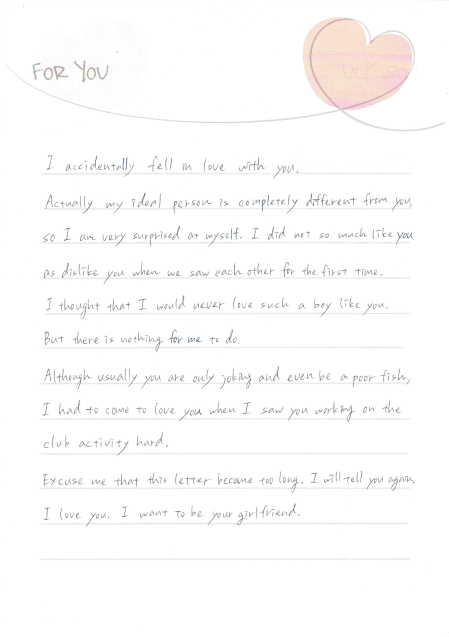 FOR YOU
I accidentally fell in love with you.
Actually my ideal person is completely different from you,
so I am very surprised at myself. I did not so much like you
as dislike you when we saw each other for the first time.
I thought that I would never love such a boy like you.
But there is nothing for me to do.
Although usually you are only joking and even be a poor fish,
I had to come to love you when I saw you working on the
club activity hard.
Excuse me that this letter became too long. I will tell you again,
I love you. I want to be your girlfriend.